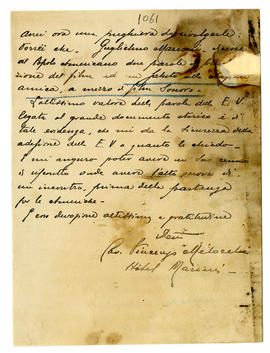 1061
Avrei ora una preghiera da rivolgerle:
Vorrei che Guglielmo Marconi dicesse
al Popolo Americano due parole di
zione del film ed un saluto alla
amica, a mezzo di film Sonoro.
L'altissimo valore delle parole dell' E. V.
legato al grande documento storico è di
tale evidenza, che mi dà la sicurezza della
adesione dell' E. V. a quanto le chiedo.
Mi auguro poter avere un Suo cenno
di risposta onde avere l'alto onore di
un incontro, prima della partenza
per le Americhe.
Con devozione altissima e gratitudine
Cav. Vincenzo
Hôtel